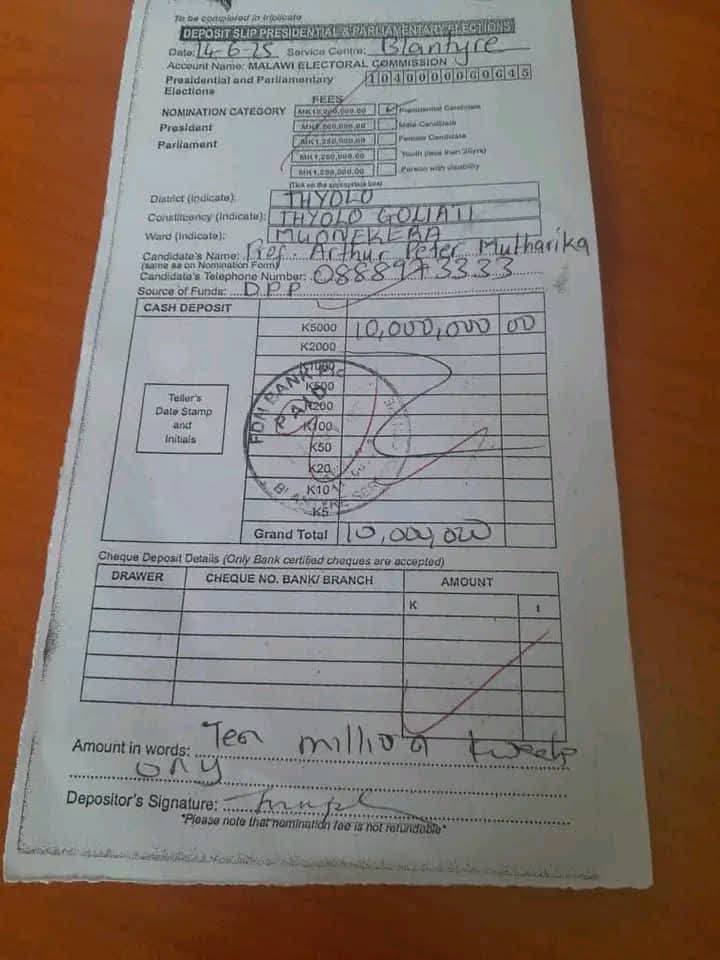 To be completed in triplicate
DEPOSIT SLIP PRESIDENTIAL & PARLIAMENTARY ELECTIONS
Date: 14-6-25 Service Centre: Blantyre
Account Name: MALAWI ELECTORAL COMMISSION
Presidential and Parliamentary 1040000060645
Elections
FEES
NOMINATION CATEGORY MK10,000,000.00 ✓ Presidential Candidate
President 00,000.00 Male Candidate
Parliament MK1,250,000.00 Female Candidate
MK1,250,000.00 Youth (less than 35yrs)
MK1,250,000.00 Person with disability
(Tick on the appropriate box)
District (Indicate): THYOLO
Constituency (Indicate): THYOLO GOLIATI
Ward (Indicate): MWONEKERA
Candidate's Name: Prof. Arthur Peter Mutharika
(same as on Nomination Form)
Candidate's Telephone Number: 0888973333
Source of Funds: DPP
CASH DEPOSIT
K5000 10,000,000 00
K2000
K1000
K500
K200
K100
K50
K20
K10
K5
Teller's
Date Stamp
and
Initials
FDH BANK Plc
PAID
Grand Total 10,000,000
Cheque Deposit Details (Only Bank certified cheques are accepted)
DRAWER CHEQUE NO. BANK/ BRANCH AMOUNT
K t
Amount in words: Ten million Kwacha
only
Depositor's Signature:
*Please note that nomination fee is not refundable*